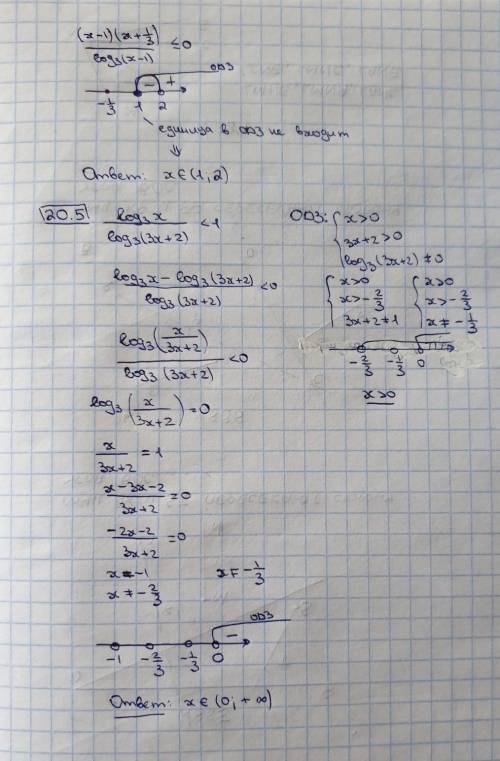 (x-1)(x+1/3) / log₃(x-1) ≤ 0
ОДЗ
- +
-1/3 1 2
единица в ОДЗ не входит
⇓
Ответ: x ∈ (1; 2)
20.5 log₃x / log₃(3x+2) < 1
ОДЗ: { x>0
3x+2>0
log₃(3x+2) ≠ 0
{ x>0
x>-2/3
3x+2≠1
{ x>0
x>-2/3
x≠-1/3
-2/3 -1/3 0
x>0
log₃x - log₃(3x+2) / log₃(3x+2) < 0
log₃(x/(3x+2)) / log₃(3x+2) < 0
log₃(x/(3x+2)) = 0
x/(3x+2) = 1
x-3x-2 / 3x+2 = 0
-2x-2 / 3x+2 = 0
x=-1 x≠-1/3
x≠-2/3
ОДЗ
-
-1 -2/3 -1/3 0
Ответ: x ∈ (0; +∞)